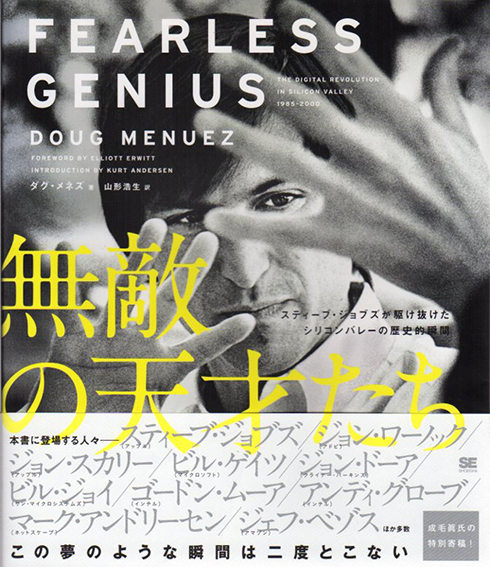 FEARLESS
GENIUS
THE DIGITAL REVOLUTION
IN SILICON VALLEY
1985-2000
DOUG MENUEZ
FOREWORD BY ELLIOTT ERWITT
INTRODUCTION BY KURT ANDERSEN
ダグ・メネズ 著 山形浩生 訳
無敵
の天才たち
スティーブ・ジョブズが駆け抜けた
シリコンバレーの歴史的瞬間
本書に登場する人々──スティーブ・ジョブズ/ジョン・ワーノック/
(アップル) (アドビ)
ジョン・スカリー/ビル・ゲイツ/ジョン・ドーア/
(アップル) (マイクロソフト) (クライナー・パーキンス)
ビル・ジョイ/ゴードン・ムーア/アンディ・グローブ/
(サン・マイクロシステムズ) (インテル) (インテル)
マーク・アンドリーセン/ジェフ・ベゾス ほか多数
(ネットスケープ) (アマゾン)
この夢のような瞬間は二度とこない
SE
SHOEISHA
成毛眞氏の
特別寄稿!